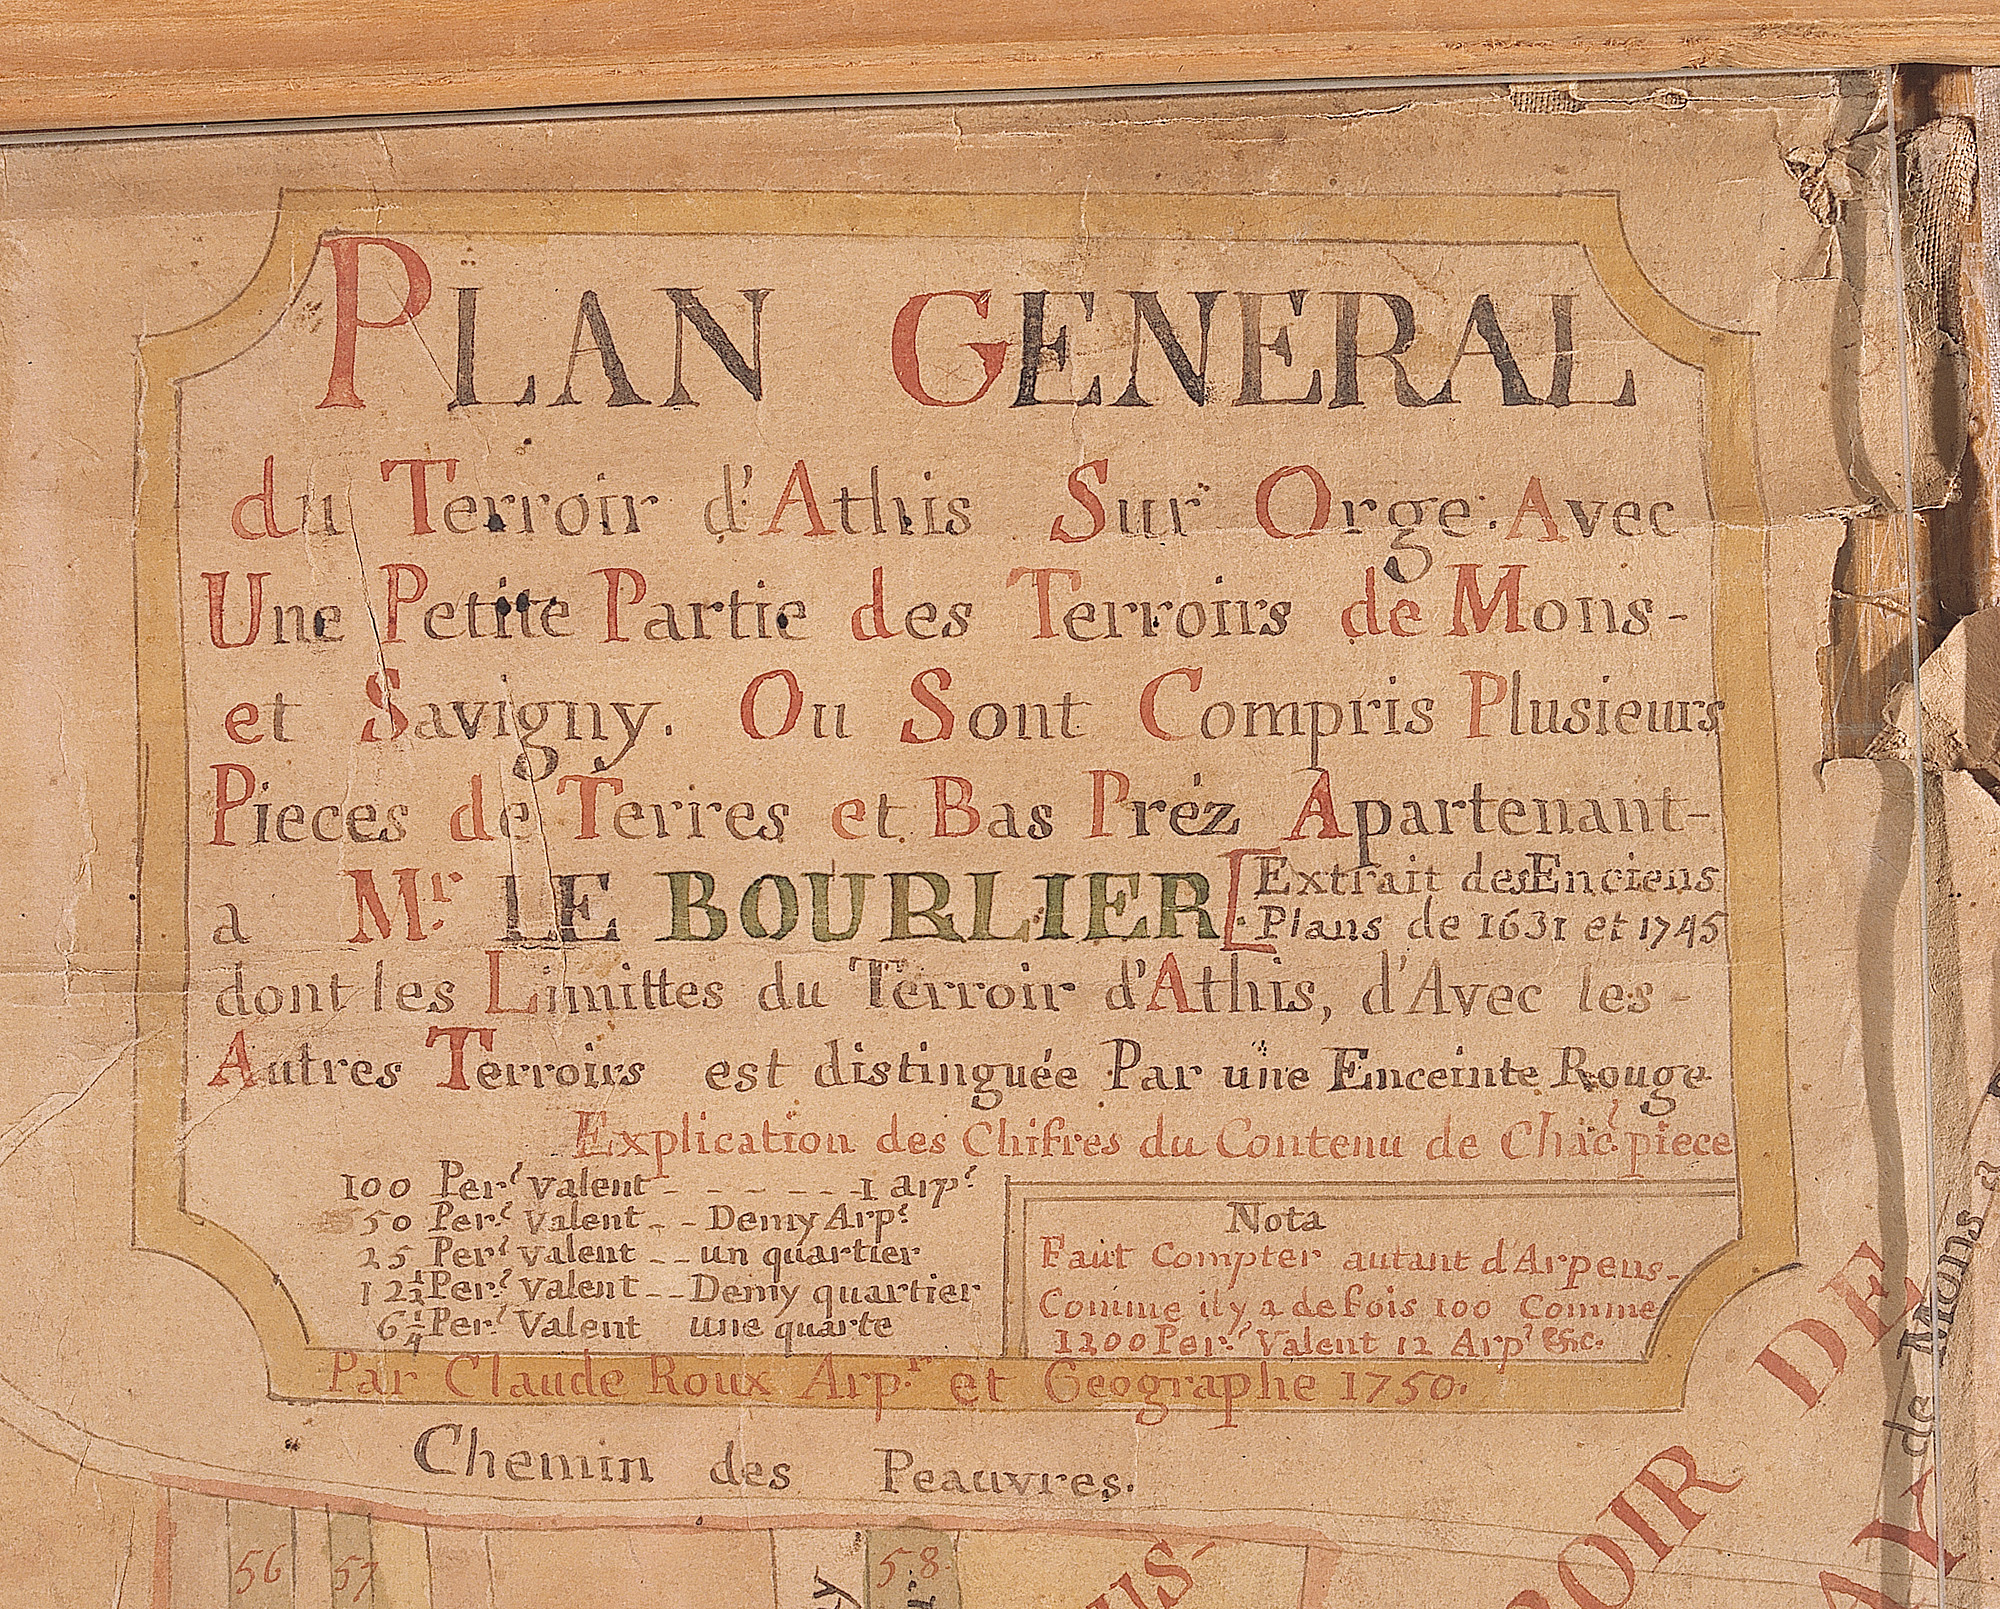 PLAN GENERAL
du Terroir d'Athis Sur Orge. Avec
Une Petite Partie des Terroirs de Mons-
et Savigny. Ou Sont Compris Plusieurs
Pieces de Terres et Bas Préz Apartenant-
a Mr. LE BOURLIER [Extrait des Enciens
Plans de 1631 et 1745
dont les Limittes du Terroir d'Athis, d'Avec les-
Autres Terroirs est distinguée Par une Enceinte Rouge
Explication des Chifres du Contenu de Chac.e piece
100 Per.s valent - - - - - - 1 arp.t
50 Per.s valent - - Demy Arp.t
25 Per.s valent - - un quartier
12½ Per.s valent - - Demy quartier
6¼ Per.s Valent une quarte
Nota
Faut Compter autant d'Arpens-
Comme il y a de fois 100 Comme
1200 Per.s Valent 12 Arp.s &c.
Par Claude Roux Arp.r et Geographe 1750.
Chemin des Peauvres.
56
57
58
DE
de Mons